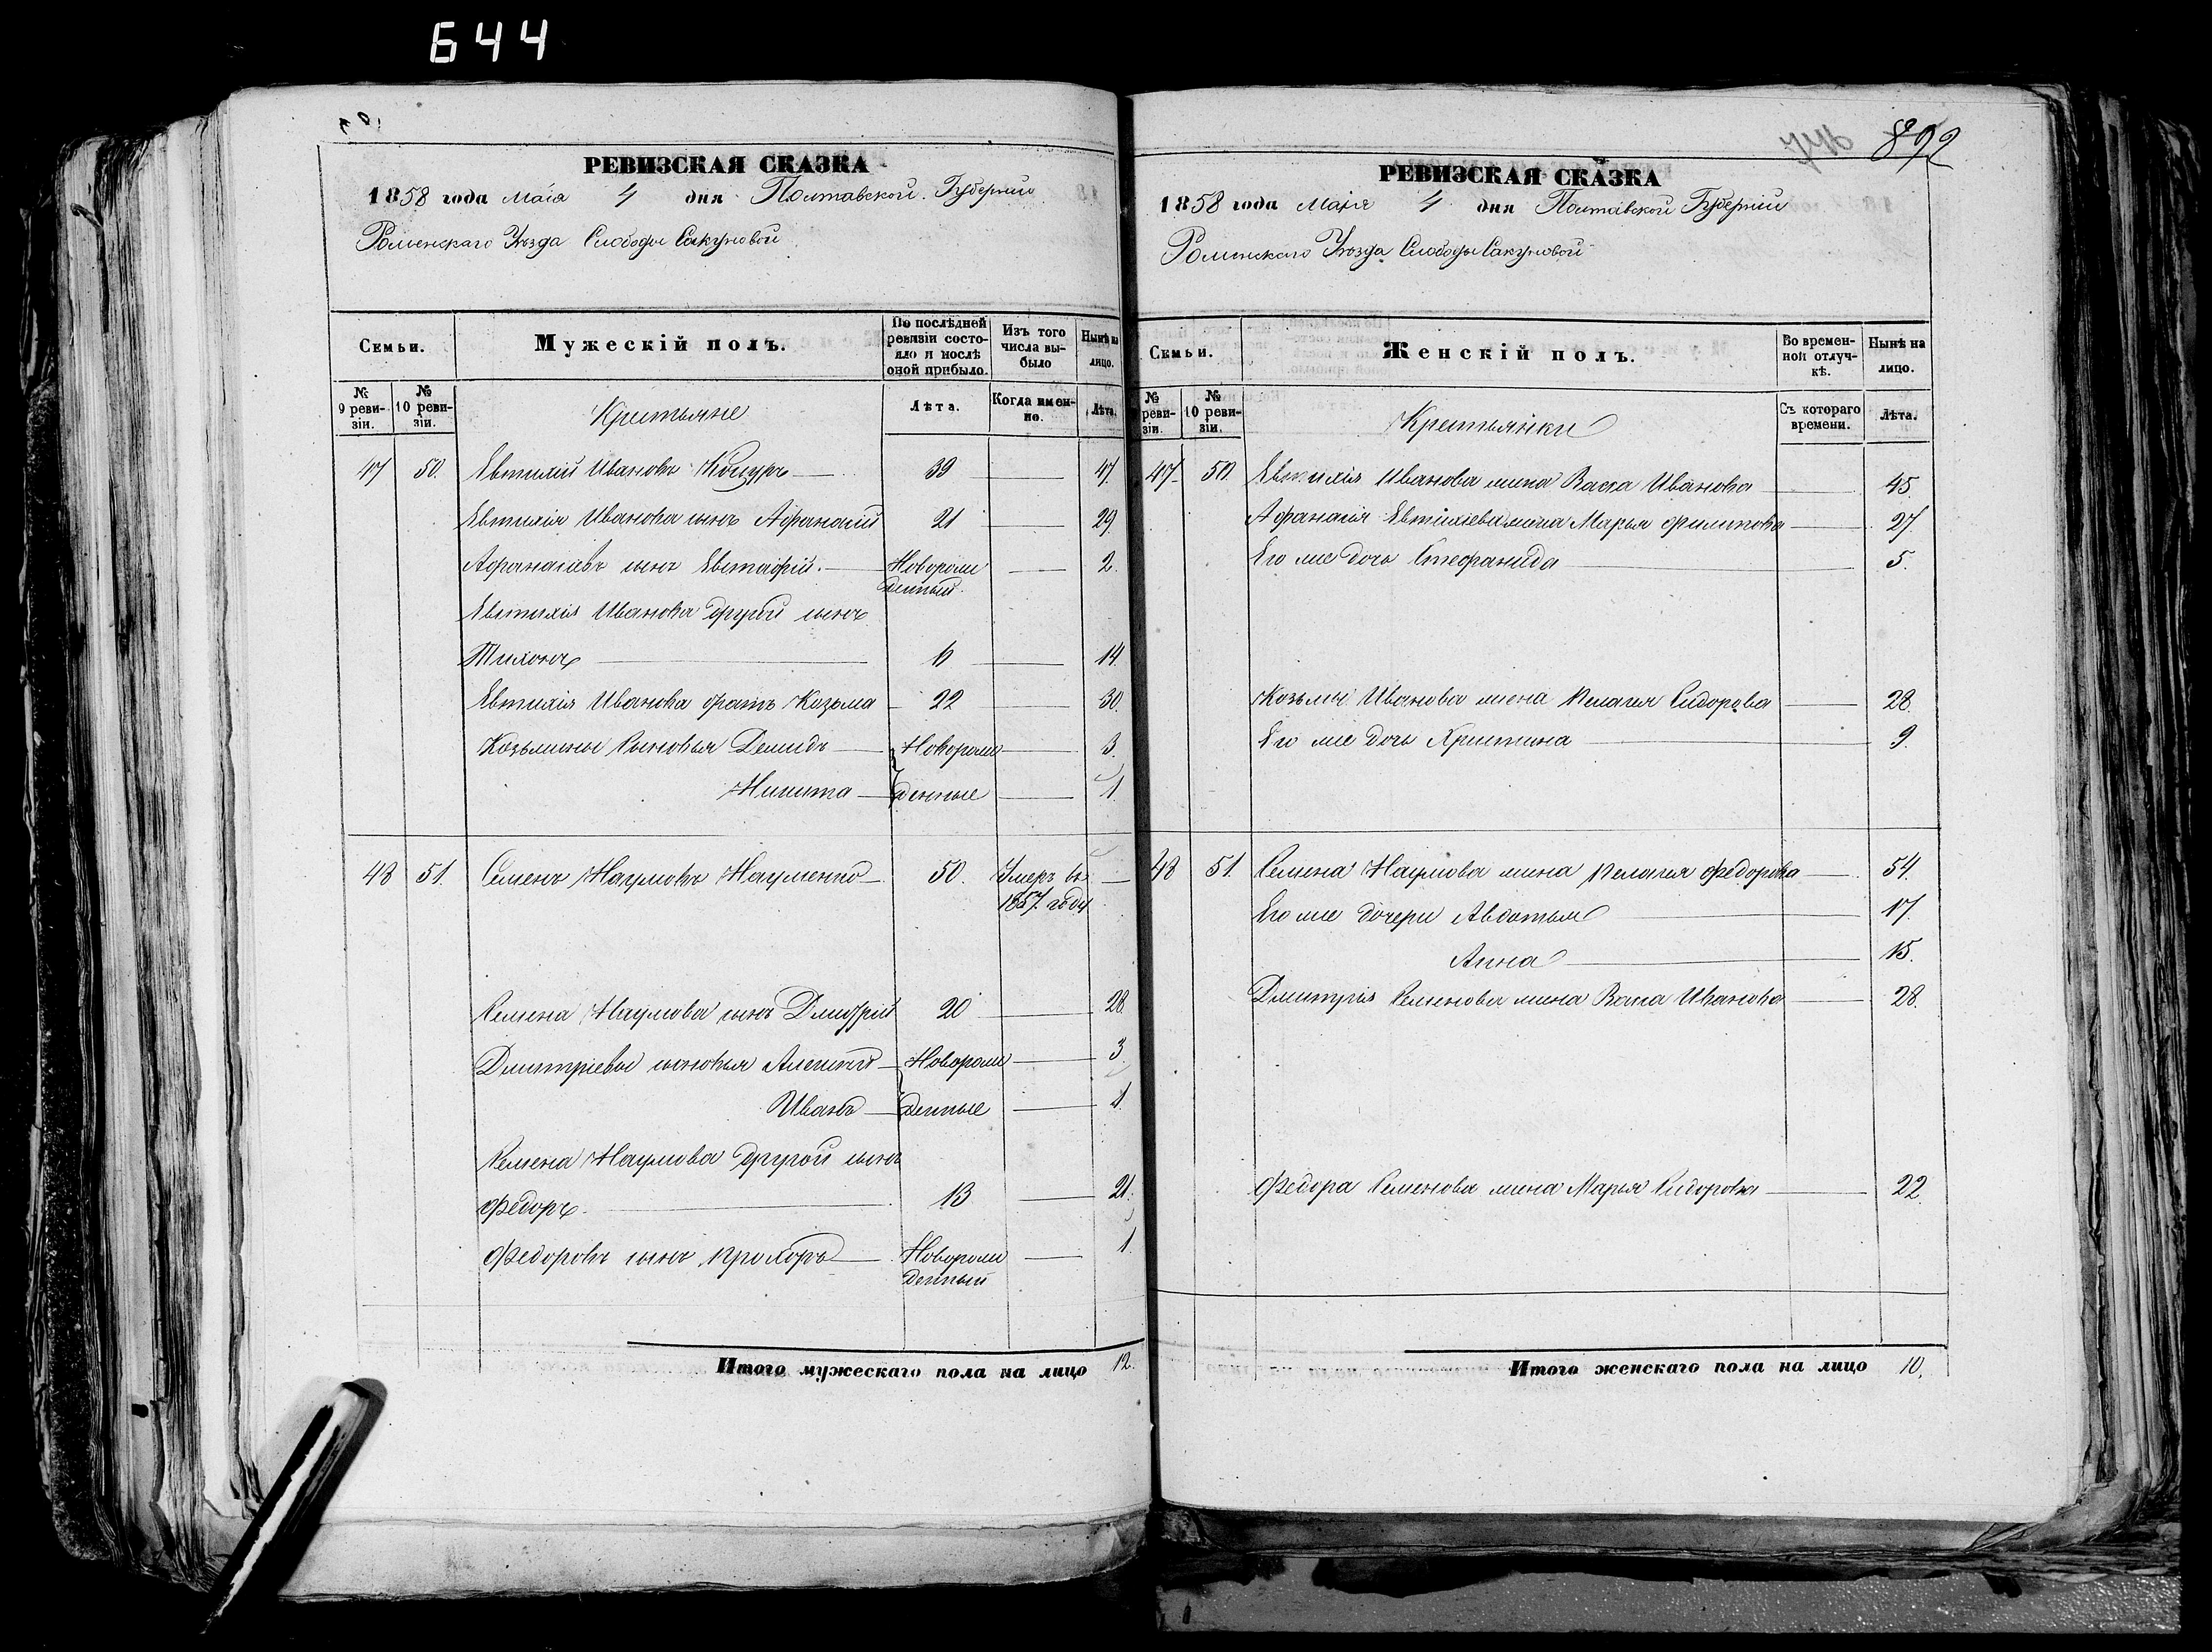 644
РЕВИЗСКАЯ СКАЗКА
1858 года Маія 4 дня Полтавской Губерніи
Роменскаго Уѣзда Слободы Сакуновой
Семьи.
Мужескій полъ.
По послѣдней ревизіи состояло и послѣ оной прибыло.
Изъ того числа выбыло
Нынѣ на лицо.
№ 9 ревизіи.
№ 10 ревизіи.
Крестьяне
Лѣта.
Когда именно.
Лѣта.
47 50. Евтихій Ивановъ 39 47.
Евтихія Иванова сынъ Афанасій 21 29
Афанасіевъ сынъ Евстафій. Новорож 2.
денный.
Евтихія Иванова другой сынъ
Тихонъ 6 14.
Евтихія Иванова братъ Козьма 22 30.
Козьмины сыновья Демидъ Новорож 3.
Никита денные 1.
48 51. Семенъ Наумовъ Науменко 50. Умеръ въ
1857 году
Семена Наумова сынъ Дмитрій 20 28
Дмитріевы сыновья Алексѣй Новорож 3
Иванъ денные 1.
Семена Наумова другой сынъ
Федоръ. 13 21.
Федоровъ сынъ Прохоръ Новорож 1.
денный
Итого мужескаго пола на лицо 12.
746 892
РЕВИЗСКАЯ СКАЗКА
1858 года Маія 4 дня Полтавской Губерніи
Роменскаго Уѣзда Слободы Сакуновой
Семьи.
Женскій полъ.
Во временной отлучкѣ.
Нынѣ на лицо.
№ ревизіи.
№ 10 ревизіи.
Крестьянки
Съ котораго времени.
Лѣта.
47 50. Евтихія Иванова жена Васса Иванова 45
Афанасія Евтихіева жена Марья Филипова 27.
Его же дочь Стефанида 5.
Козьмы Иванова жена Пелагея Сидорова 28.
Его же дочь Христина 9.
48 51. Семена Наумова жена Пелагея Федорова 54.
Его же дочери Авдотья 17.
Анна 15.
Дмитрія Семенова жена Васса Иванова 28.
Федора Семенова жена Марья Сидорова 22
Итого женскаго пола на лицо 10.